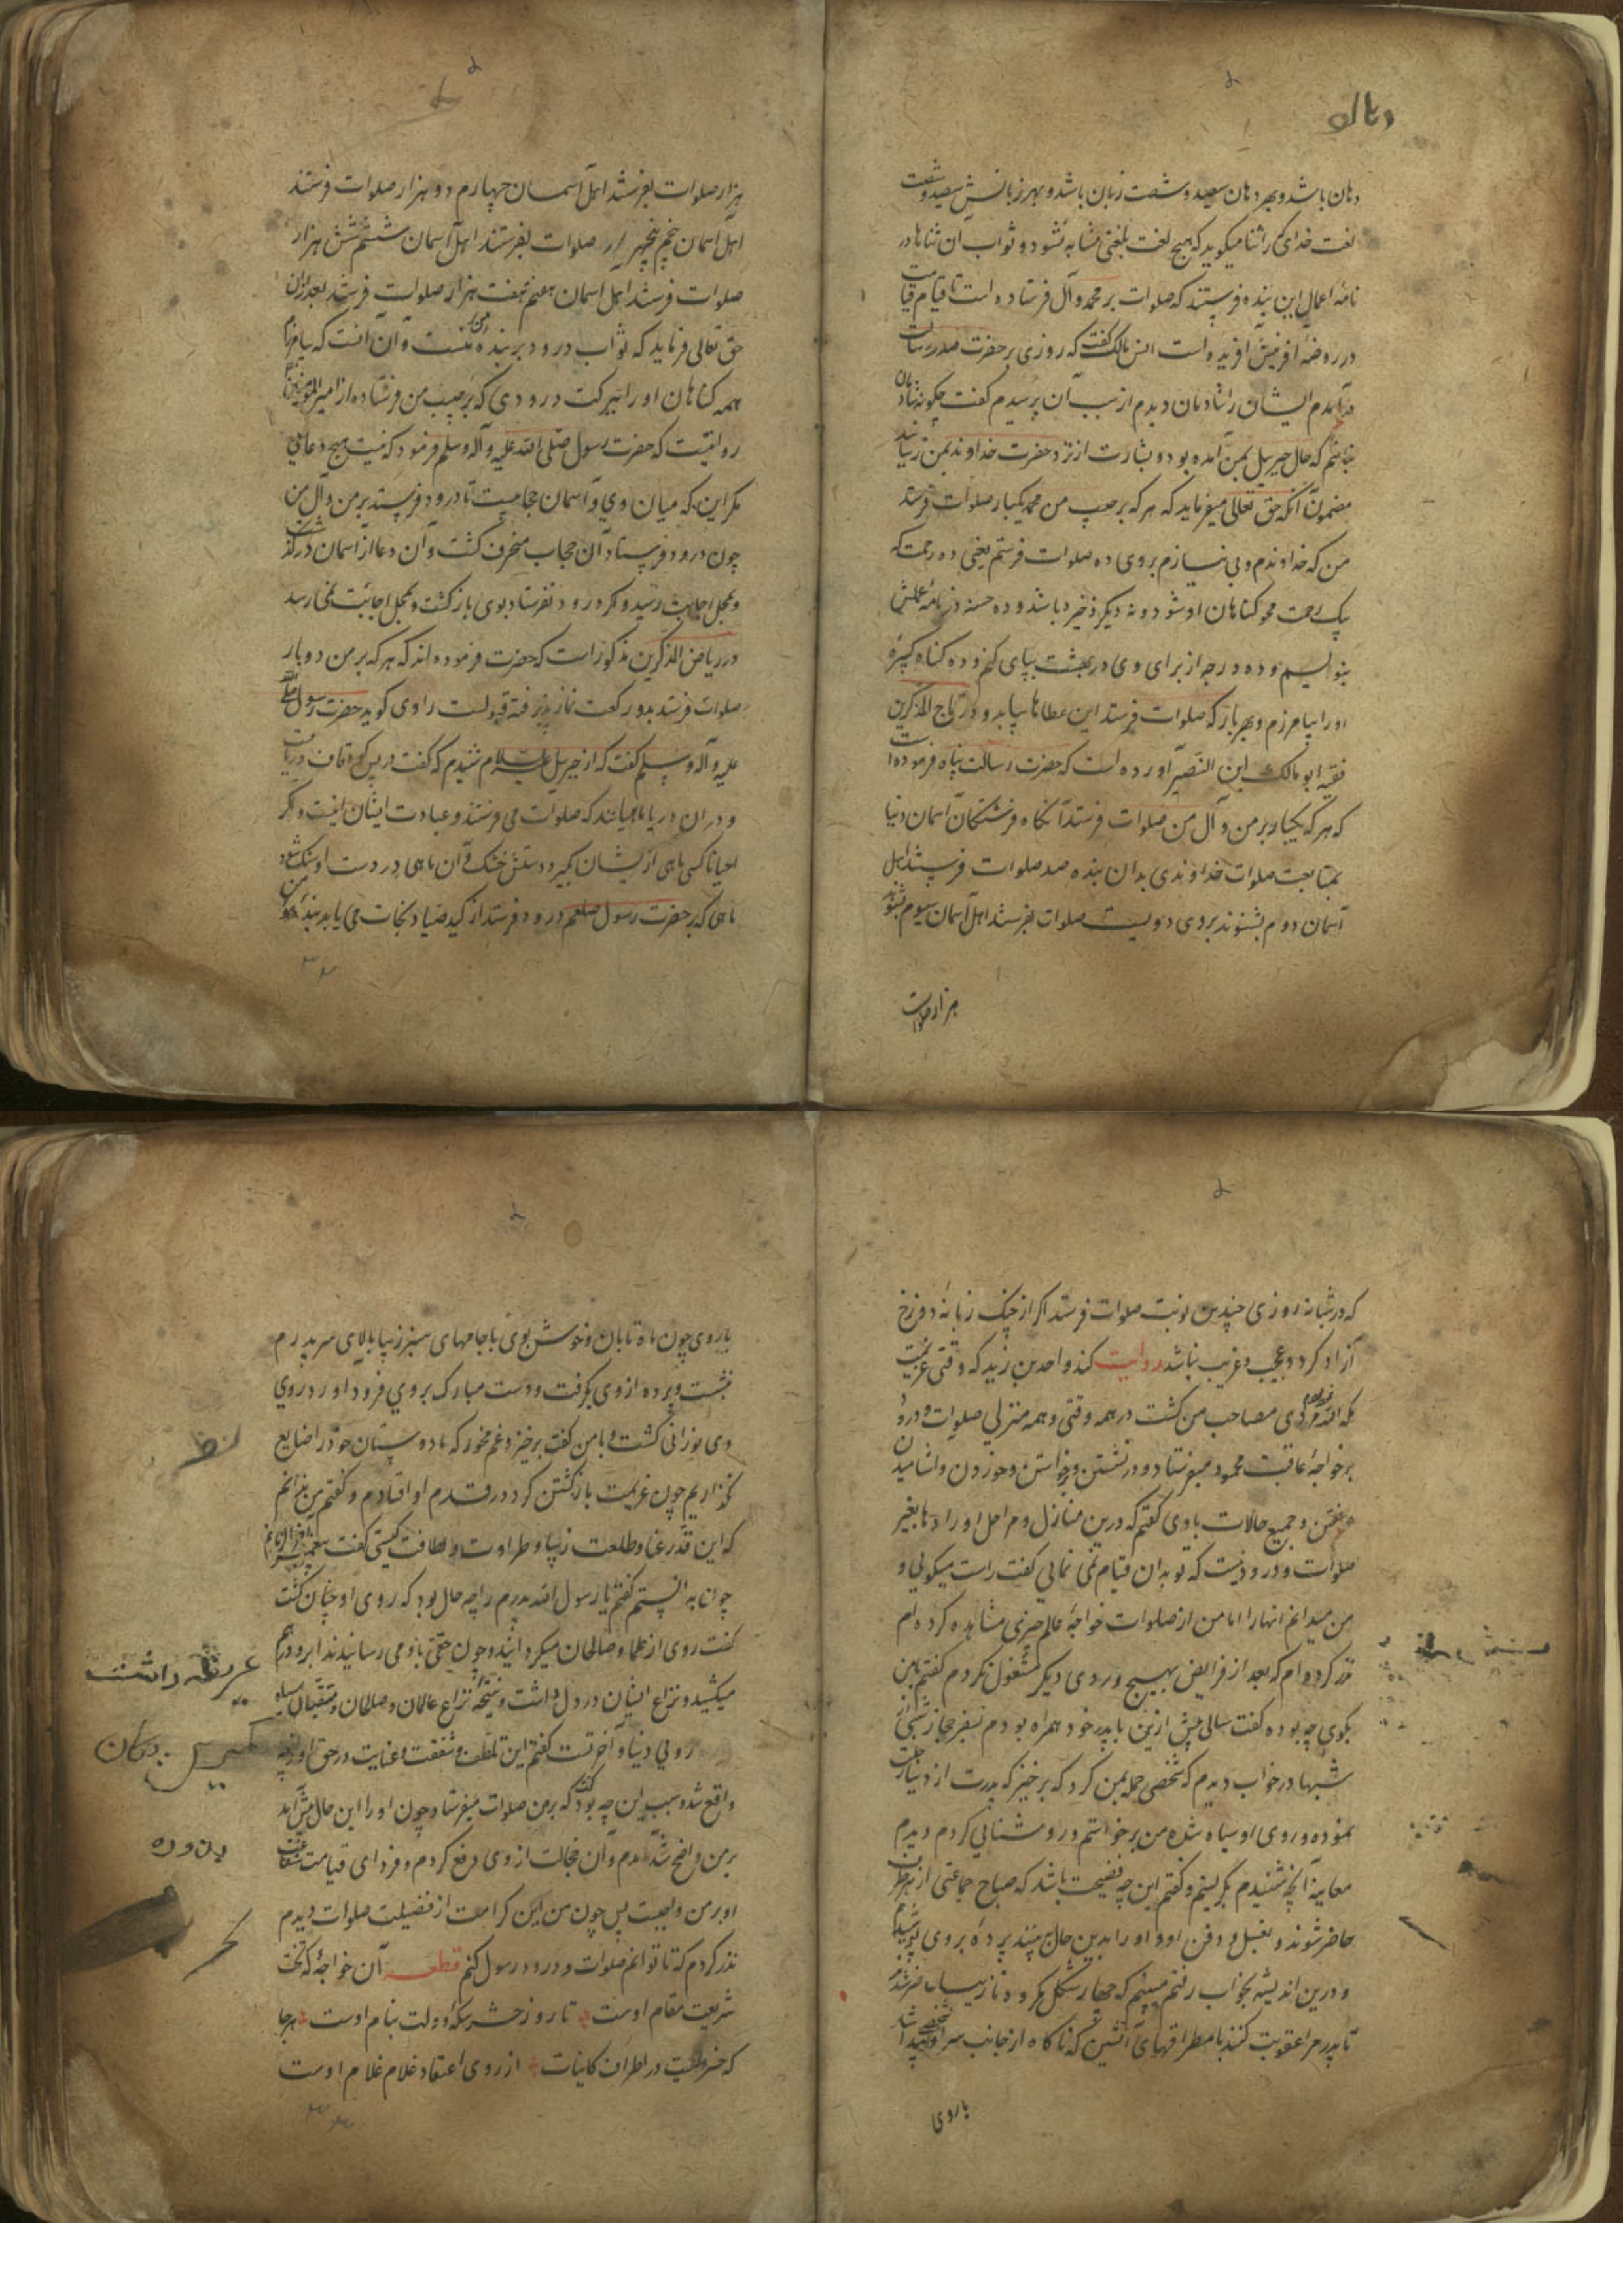 دهان باشد و بهر دهان سیصد و شصت زبان باشد و بهر زبانش سیصد و شصت
لغت خدای را ثنا میگوید که هیچ لغت بلغتی مشابه نشود و ثواب آن ثناها در
نامهٔ اعمال این بنده فرستند که صلوات بر محمد و آل فرستاده است تا قیام قیامت
در روضهٔ افرینش افریده است انس مالک گفت که روزی بر حضرت صدر رسالت
درآمدم ایشان را شادمان دیدم از سبب آن پرسیدم گفت چگونه شادمان
نباشم که حال جبرییل بمن آمده بود و بشارت از نزد حضرت خداوند بمن رسانید
مضمون آنکه حق تعالی میفرماید که هر که بر حبیب من محمد یکبار صلوات فرستد
من که خداوندم و بی نیازم بر وی ده صلوات فرستم یعنی ده رحمت که
یک رحمت محو کناهان او شود و نه دیگر ذخیره باشد و ده حسنه در نامهٔ عملش
بنویسم و ده درجه از برای وی در بهشت بپای کنم و ده کناه کبیرهٔ
او را بیامرزم و بهر بار که صلوات فرستد این عطاها بیابد و در تاج المذکرین
فقیه ابو مالک ابن النصیر آورده است که حضرت رسالت پناه فرموده است
که هر که یکبار بر من و آل من صلوات فرستد آنکاه فرشتکان آسمان دنیا
بمتابعت صلوات خداوندی بدان بنده صد صلوات فرستند اهل
آسمان دوم بشنوند بر وی دویست صلوات بفرستند اهل آسمان سیوم بشنوند
هزار صلوات
هزار صلوات بفرستند اهل آسمان چهارم دو هزار صلوات فرستند
اهل آسمان پنجم پنجهزار صلوات بفرستند اهل آسمان ششم شش هزار
صلوات فرستند اهل آسمان هفتم هفت هزار صلوات فرستند بعد از آن
حق تعالی فرماید که ثواب درود بر بنده من منست و آن آنست که بیامرزم
همه کناهان او را ببرکت درودی که بر حبیب من فرستاده از امیر المؤمنین
روایتست که حضرت رسول صلی الله علیه و آله وسلم فرمود که نیست هیچ دعایی
مکر این که میان وی و آسمان حجابیست تا درود فرستد بر من و آل من
چون درود فرستاد آن حجاب منخرف کشت و آن دعا از آسمان درگذشت
و بمحل اجابت رسید و مکر درود نفرستاد بوی باز کشت و بمحل اجابت نمی رسد
در ریاض المذکرین مذکور است که حضرت فرموده اند که هر که بر من دوبار
صلوات فرستد بدو رکعت نماز پذیرفته قبولست راوی کوید حضرت رسول صلی الله
علیه و آله وسلم گفت که از جبرییل علیه السلام شنیدم که گفت در پس کوه قاف دریاست
و در ان دریا ماهیانند که صلوات می فرستند و عبادت ایشان اینست و مکر
احیانا کسی ماهی از یشان بگیرد دستش خشک و آن ماهی در دست او سنک شود
ماهی که بر حضرت رسول صلعم درود فرستد از کید صیاد نجات می یابد بنده مومن
که در شبانه روزی چندین نوبت صلوات فرستد اکر از چنک زبانهٔ دوزخ
آزاد کردد عجب و غریب نباشد روایت کند واحد بن زید که وقتی عزیمت
مکه افتاد مردی مصاحب من کشت در همه وقتی و همه منزلی صلوات و درود
بر خواجهٔ عاقبت محمود میفرستاد و در نشستن و برخواستن و خوردن و اشامیدن
و خفتن و جمیع حالات با وی کفتم که درین منازل و مراحل اورادها بغیر
صلوات و درود نیست که تو بدان قیام نمی نمایی کفت راست میکویی و
من میدانم انها را اما من از صلوات خواجهٔ عالم چیزی مشاهده کرده ام
نذر کرده ام که بعد از فرایض بهیچ وردی دیکر مشغول نکردم کفتم بمن
بکوی چه بوده کفت سالی پیش ازین با پدر خود همراه بودم بسفر حجاز شبی از
شبها در خواب دیدم که شخصی حمله بمن کرد که برخیز که پدرت از دنیا رحلت
نموده و روی او سیاه شده من برخواستم و روشنایی کردم دیدم
معاینه آنچه شنیدم بکریستم و کفتم این چه فضیحت باشد که صباح جماعتی از هر طرف
حاضر شوند و بغسل و دفن او و او را بدین حال بینند پردهٔ بر وی پوشیدم
و درین اندیشه بخواب رفتم میبینم که چهار شکل مکروه با تازیانه حاضر شدند
تا پدر مرا عقوبت کنند با مطراقهای آتشین که ناکاه از جانب سر او شخصی پیدا شد
با روی
با روی چون ماه تابان و خوش بوی با جامهای سبز زیبا بالای سر پدرم
بنشست و پرده از وی برکرفت و دست مبارک بروی فرود اورد روی
وی نورانی کشت و با من کفت برخیز و غم مخور که ما دوستان خود را ضایع
نکذاریم چون عزیمت بازکشتن کرد در قدم او افتادم و کفتم من نمیدانم
که این قد رعنا و طلعت زیبا و طراوت و لطافت کیستی کفت پیغمبر آخر الزمانم
چون بدانستم کفتم یا رسول الله پدرم را چه حال بود که روی او چنان کشت
کفت روی از علما و صالحان میکردانید و چون حقی باو می رسانیدند ابرو درهم
میکشید و نزاع ایشان در دل داشت و نتیجه نزاع عالمان و صالحان و متقیان سیاه
رویی دنیا و آخرتست کفتم این تلطف و شفقت و عنایت در حق او از چه
واقع شد و سبب این چه بود کفت که بر من صلوات میفرستاد و چون او را این حال پیش آمد
بر من واضح شد آمدم و آن خجالت از وی دفع کردم و فردای قیامت شفاعت
او بر من واجبست پس چون من این کرامت از فضیلت صلوات دیدم
نذر کردم که تا توانم صلوات و درود رسول کنم قطعه آن خواجهٔ که تخت
شریعت مقام اوست تا روز حشر سکهٔ دولت بنام اوست هر جا
که خسرویست در اطراف کاینات از روی اعتقاد غلام غلام اوست
عریضه داشت